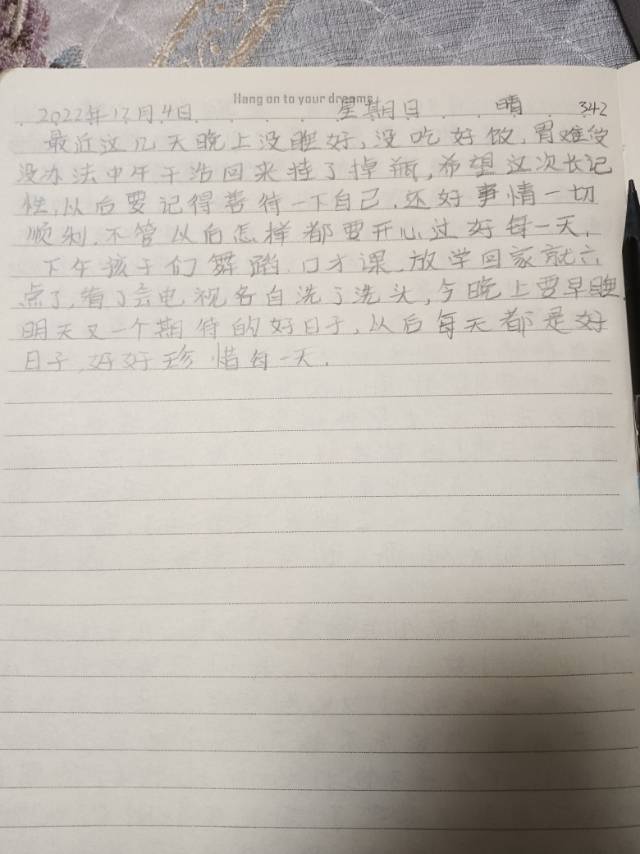 Hang on to your dreams
2022年12月4日 星期日 晴 342
最近这几天晚上没睡好,没吃好饭,胃难受
没办法中午干活回来挂了掉瓶,希望这次长记
性,从后要记得善待一下自己,还好事情一切
顺利,不管从后怎样都要开心过好每一天,
下午孩子们舞蹈,口才课,放学回家就六
点了,看了会电视各自洗了洗头,今晚上要早睡,
明天又一个期待的好日子,从后每天都是好
日子,好好珍惜每一天.